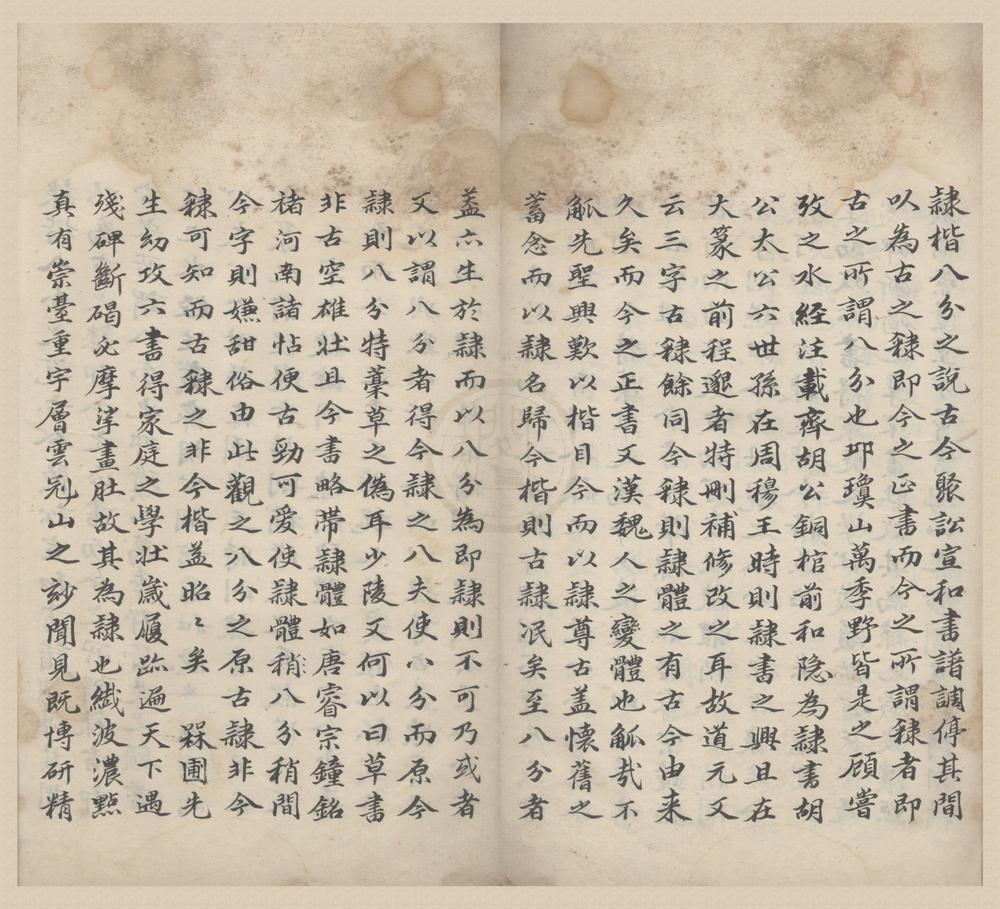 隷楷八分之説古今聚訟宣和書譜調停其間
以為古之隸即今之正書而今之所謂隸者即
古之所謂八分也邛瓊山萬季野皆是之顧嘗
攷之水經注載齊胡公銅棺前和隐為隷書胡
公太公六世孫在周穆王時則隷書之興且在
大篆之前程邈者特刪補修改之耳故道元又
云三字古隸餘同今隸則隷體之有古今由来
久矣而今之正書又漢魏人之變體也觚哉不
觚先聖興歎以楷目今而以隷尊古盖懷舊之
蓄念而以隷名歸今楷則古隷泯矣至八分者
盖六生於隷而以八分為即隷則不可乃或者
又以謂八分者得今隷之八夫使八分而原今
隷則八分特藁草之偽耳少陵又何以曰草書
非古空雄壮且今書略帯隷體如唐睿宗鐘銘
褚河南諸帖便古勁可愛使隷體稍八分稍間
今字則嫌甜俗由此觀之八分之原古隷非今
隸可知而古隸之非今楷盖昭〻矣 槑圃先
生幼攻六書得家庭之學壮嵗履跡遍天下遇
殘碑斷碣必摩挲畫肚故其為隷也纎波濃㸃
真有崇臺重宇層雲冠山之玅聞見既博研精